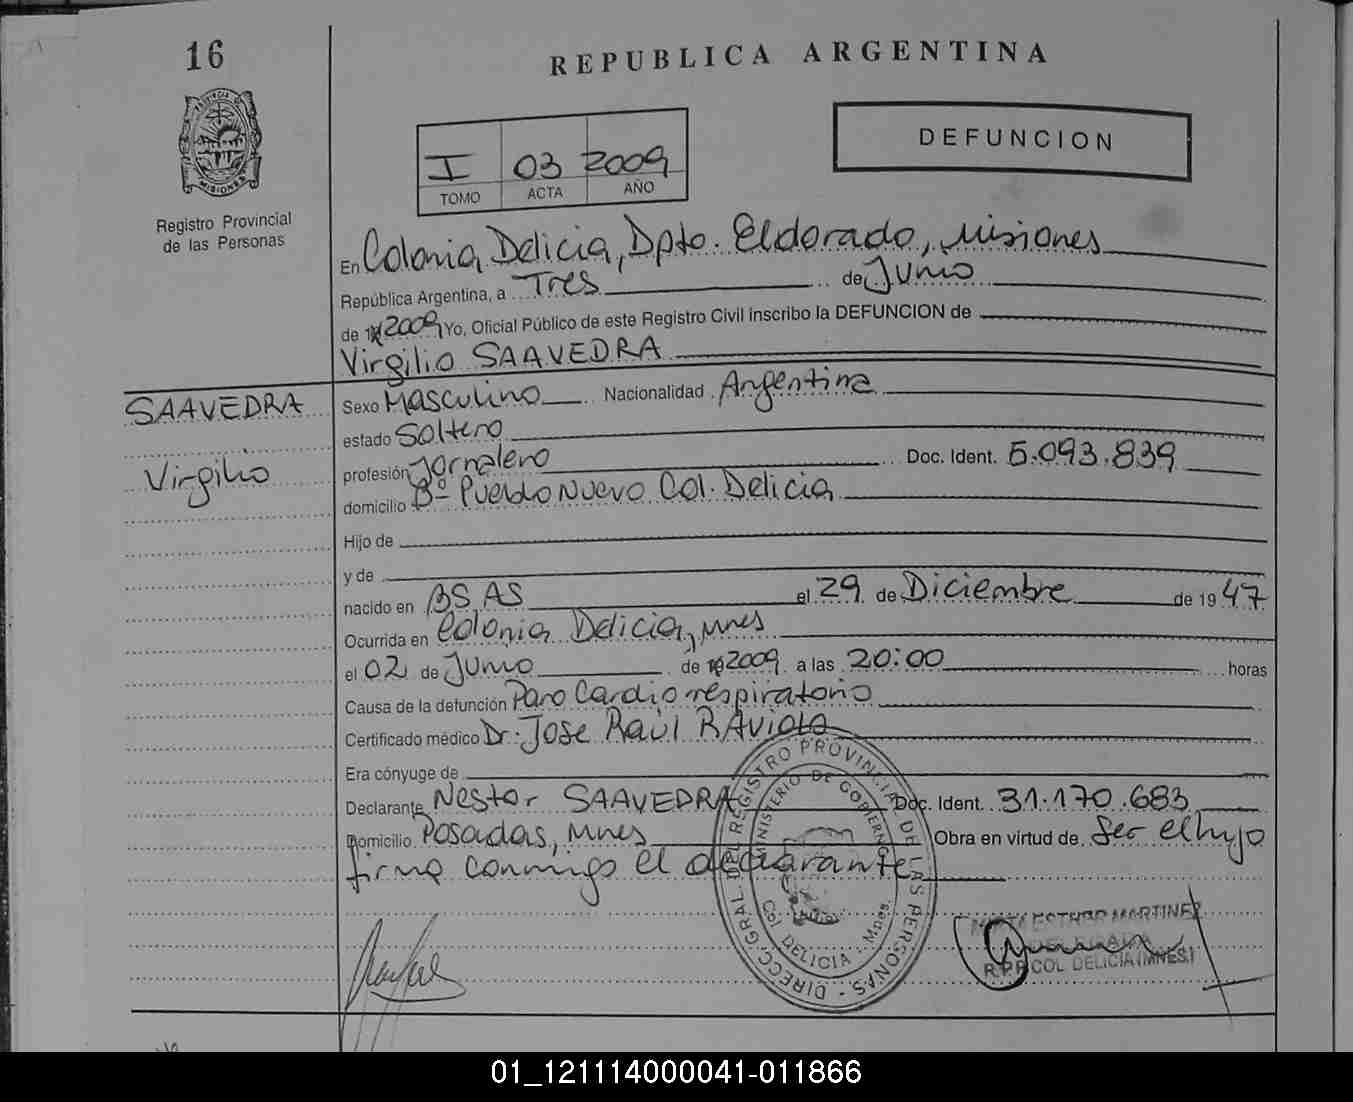 16
REPUBLICA ARGENTINA
PROVINCIA DE
MISIONES
Registro Provincial
de las Personas
I 03 2009
TOMO ACTA AÑO
DEFUNCION
En Colonia Delicia, Dpto. Eldorado, Misiones
República Argentina, a Tres de Junio
de 19 2009 Yo, Oficial Público de este Registro Civil inscribo la DEFUNCION de
Virgilio SAAVEDRA
SAAVEDRA
Virgilio
Sexo Masculino Nacionalidad Argentina
estado Soltero
profesión Jornalero Doc. Ident. 5.093.839
domicilio Bº Pueblo Nuevo Col. Delicia
Hijo de
y de
nacido en BS.AS el 29 de Diciembre de 1947
Ocurrida en Colonia Delicia, Mnes
el 02 de Junio de 19 2009 a las 20:00 horas
Causa de la defunción Paro Cardio respiratorio
Certificado médico Dr. Jose Raúl RAViOLO
Era cónyuge de
Declarante Nestor SAAVEDRA Doc. Ident. 31.170.683
Domicilio Posadas, Mnes Obra en virtud de Ser el hijo
firma conmigo el declarante
DIRECC. GRAL. DEL REGISTRO PROVINCIAL DE LAS PERSONAS
MINISTERIO DE GOBIERNO
Col. DELICIA - Mnes.
ESTHER MARTINEZ
R.P.P. COL. DELICIA (MNES.)
01_121114000041-011866